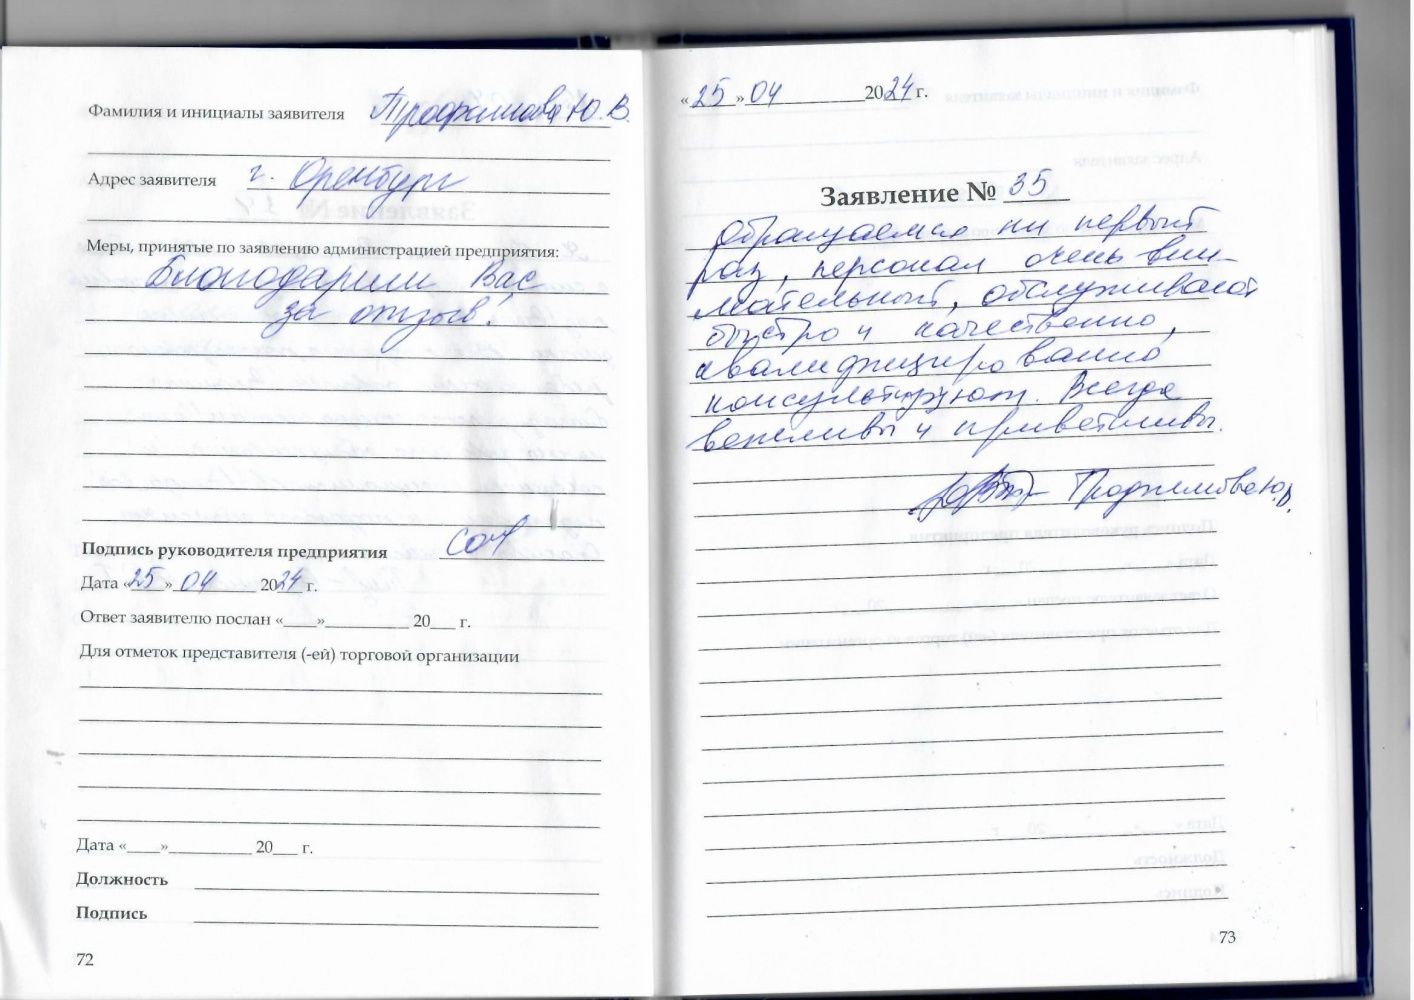 Фамилия и инициалы заявителя Ю. В.
Адрес заявителя г. Оренбург
Меры, принятые по заявлению администрацией предприятия:
Благодарим Вас
за отзыв!
Подпись руководителя предприятия
Дата «25» 04 2024 г.
Ответ заявителю послан «____»__________ 20___ г.
Для отметок представителя (-ей) торговой организации
Дата «____»__________ 20___ г.
Должность
Подпись
72
«25» 04 2024 г.
Заявление № 35
Обращаемся ни первый
раз, персонал очень вни-
мательный, обслуживают
быстро и качественно,
квалифицированно
консультируют. Всегда
вежливы и приветливы.
Ю.В.
73